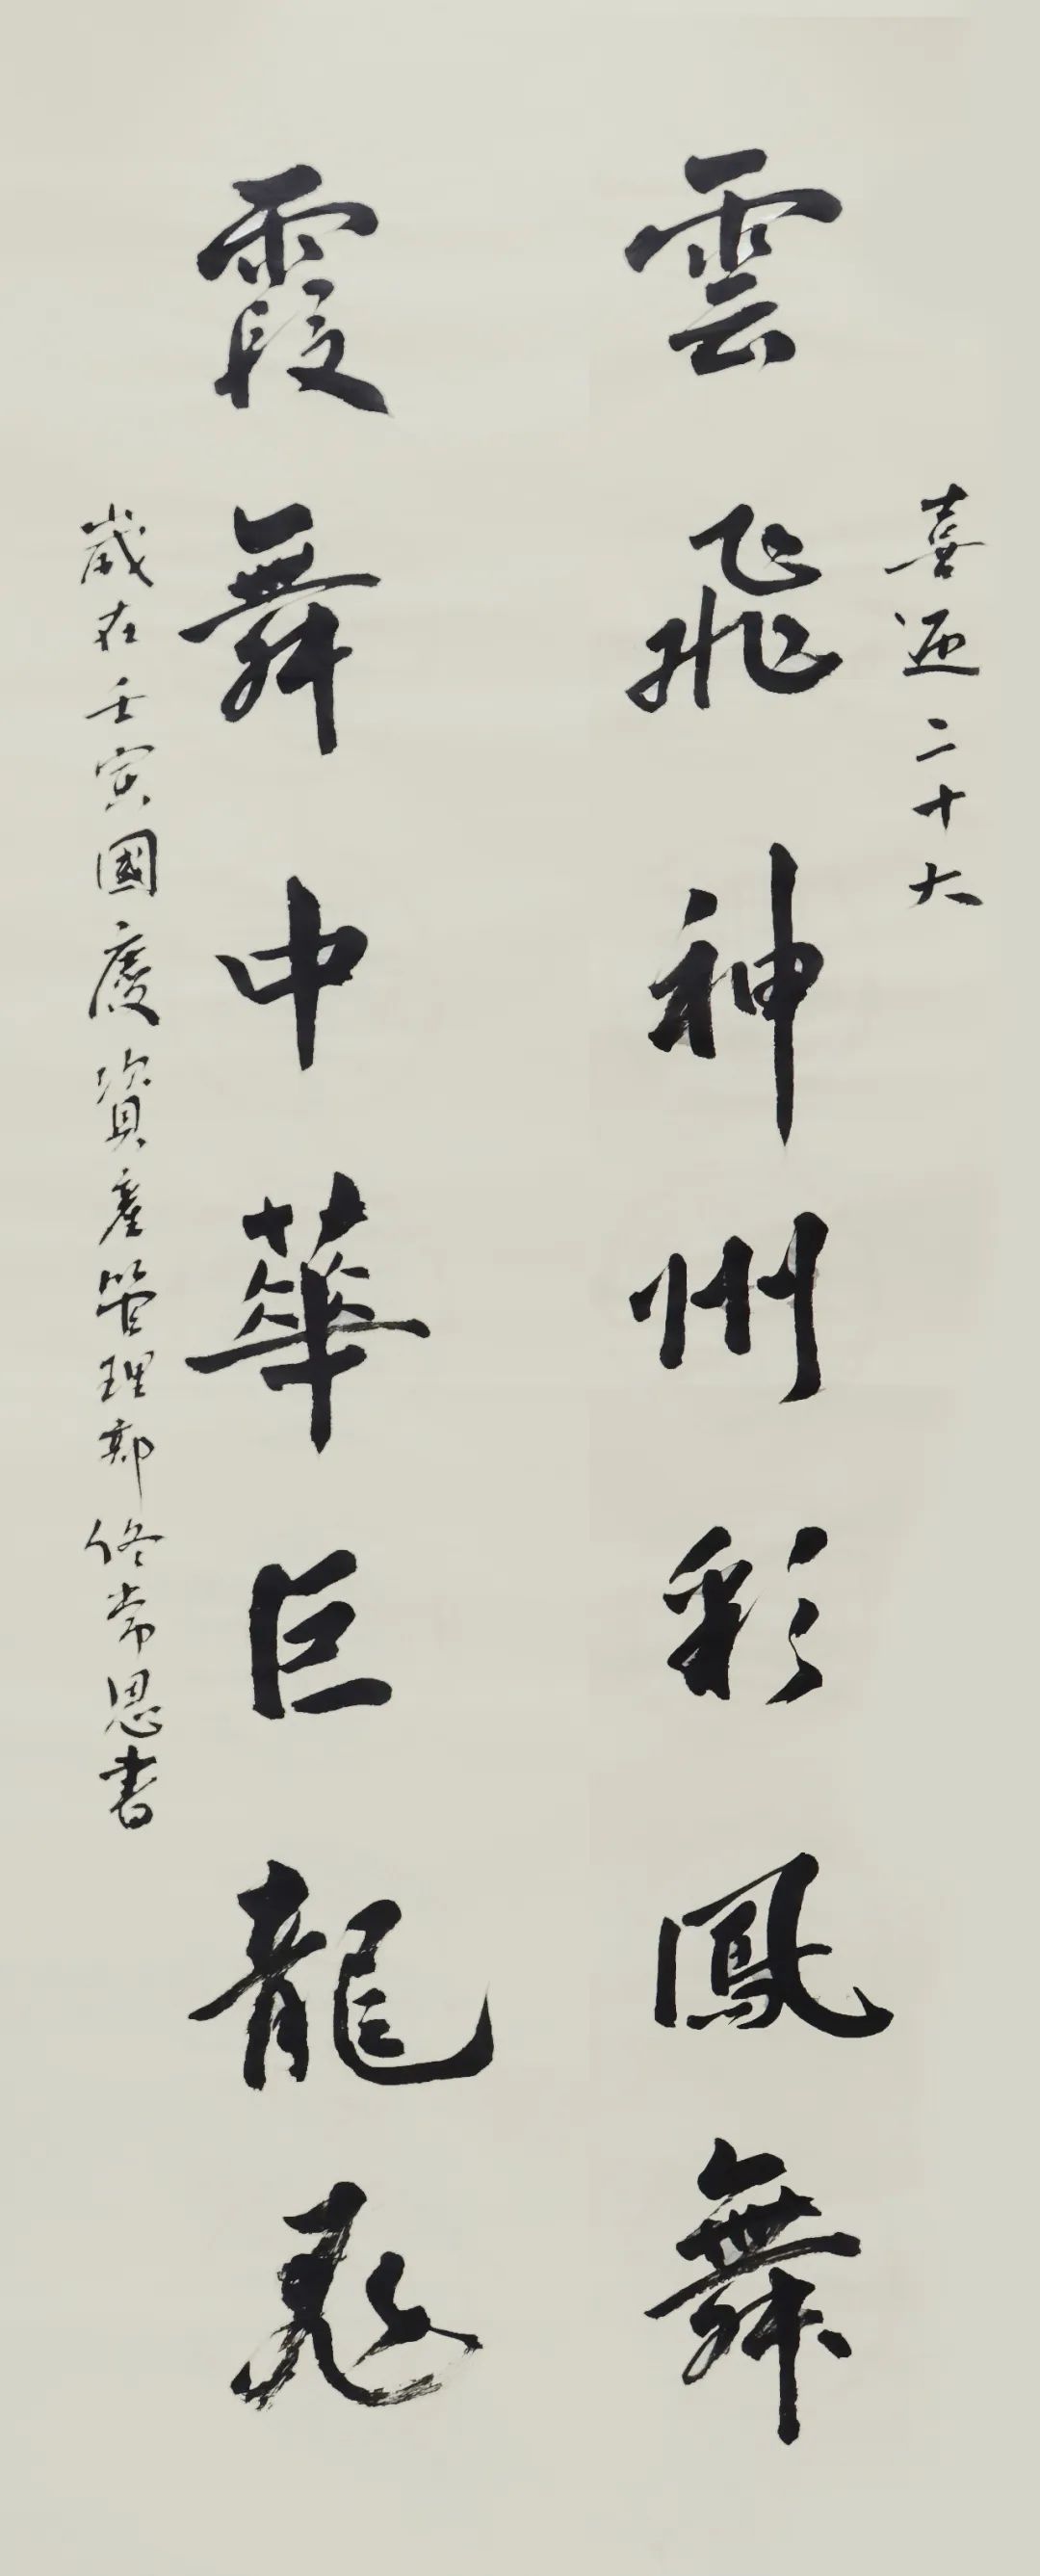 喜迎二十大
雲飛神州彩鳳舞
霞舞中華巨龍飛
歲在壬寅國慶資產管理部佟常恩書